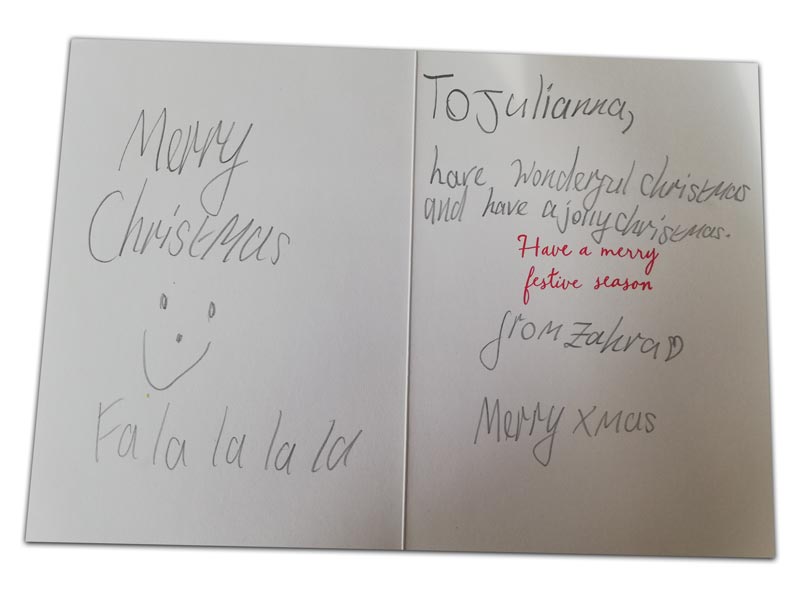 Merry
Christmas
Fa la la la la
To Julianna,
have wonderful christmas
and have a jolly christmas.
Have a merry
festive season
from Zahra
Merry xmas